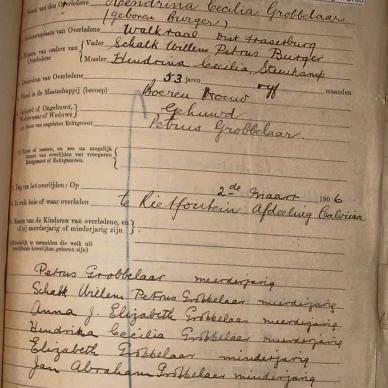 Naam van den Overledene Hendrina Cecilia Grobbelaar
(geboren Burger)
Geboorteplaats van Overledene Walkraal Dist Fraserburg
Namen van ouders van Overledene { Vader Schalk Willem Petrus Burger
Moeder Hendrina Cecilia Steenkamp
Ouderdom van Overledene 53 jaren vyf maanden
Stand in de Maatschappij (beroep) Boeren Vrouw
Gehuwd of Ongehuwd, Weduwnaar of Weduwe } Gehuwd
Petrus Grobbelaar
Dag van het overlijden: Op 2de Maart 1906
In welk huis of waar overleden te Rietfontein Afdeeling Calvinia
Namen der Kinderen van overledene, en of zij meerderjarig of minderjarig zijn
Petrus Grobbelaar meerderjarig
Schalk Willem Petrus Grobbelaar meerderjarig
Anna J. Elizabeth Grobbelaar meerderjarig
Hendrika Cecilia Grobbelaar meerderjarig
Elizabeth Grobbelaar minderjarig
Jan Abraham Grobbelaar minderjarig